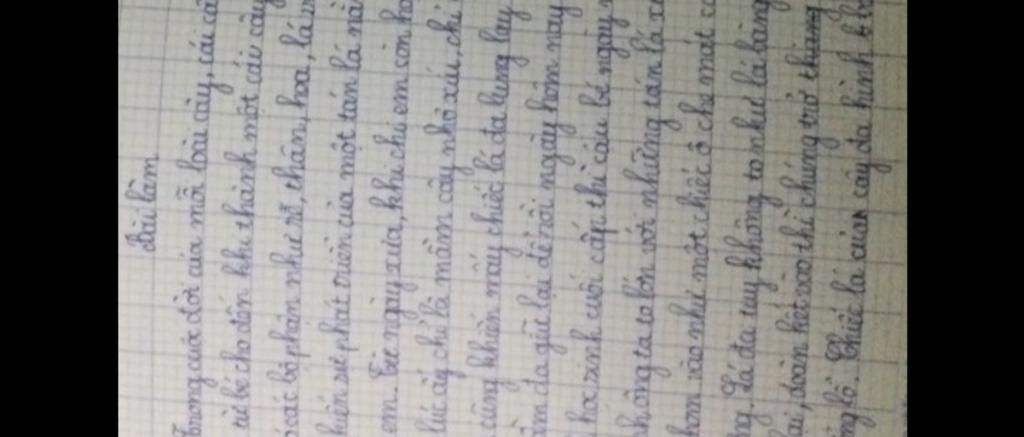 Bài làm
Trong cuộc đời của mỗi loài cây, cái câ
từ bé cho đến khi thành một cái cây
các bộ phận như rễ, thân, hoa, lá
hiện sự phát triển của một tán lá nà
em. Từ ngày xưa, khi chị em còn họ
lúc ấy chỉ là mầm cây nhỏ xíu, chỉ
cũng khiến mấy chiếc lá đa lung lay
đa giữ lại để rồi ngày hôm nay
học sinh cuối cấp thì cái cây bé ngày
không ta to lớn với những tán lá x
hơm rào như một chiếc ô che mát c
ng. Lá đa tuy không to như lá bàng
lại, đoàn kết vào thì chúng trở
ng lồ. Chiếc lá của cây đa hình b